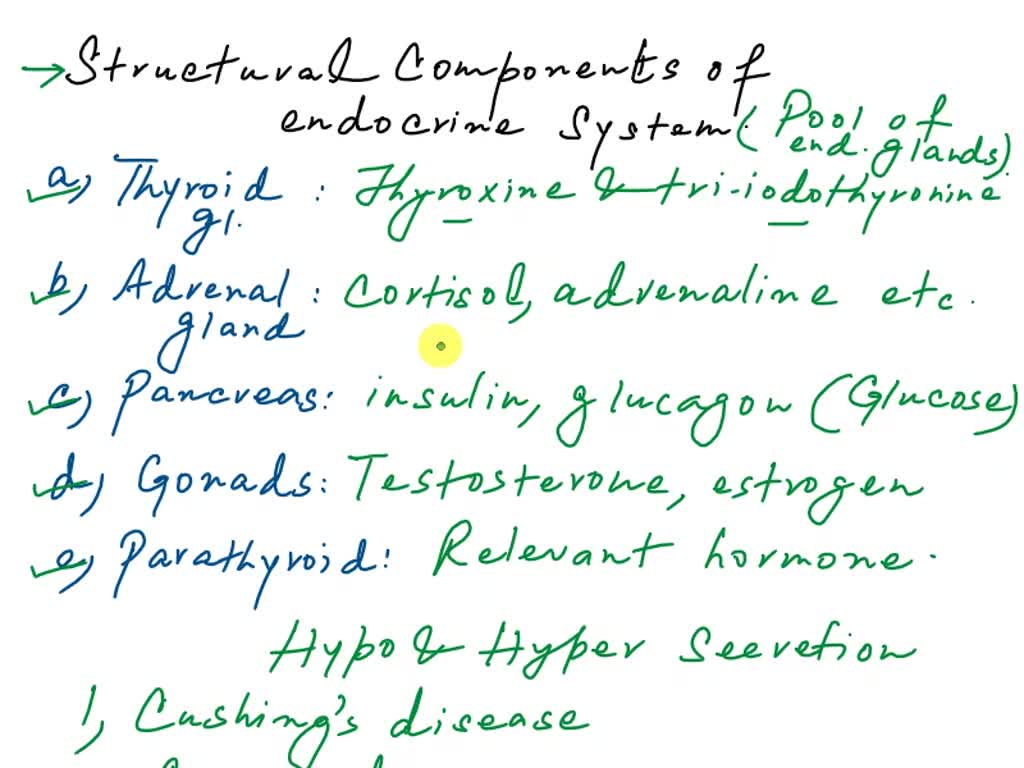 → Structural Components of
endocrine System (Pool of
end. glands)
a) Thyroid gl. : Thyroxine & tri-iodothyronine
b) Adrenal gland : Cortisol, adrenaline etc.
c) Pancreas: insulin, glucagon (Glucose)
d) Gonads: Testosterone, estrogen
e) Parathyroid: Relevant hormone.
Hypo & Hyper Secretion
1, Cushing's disease